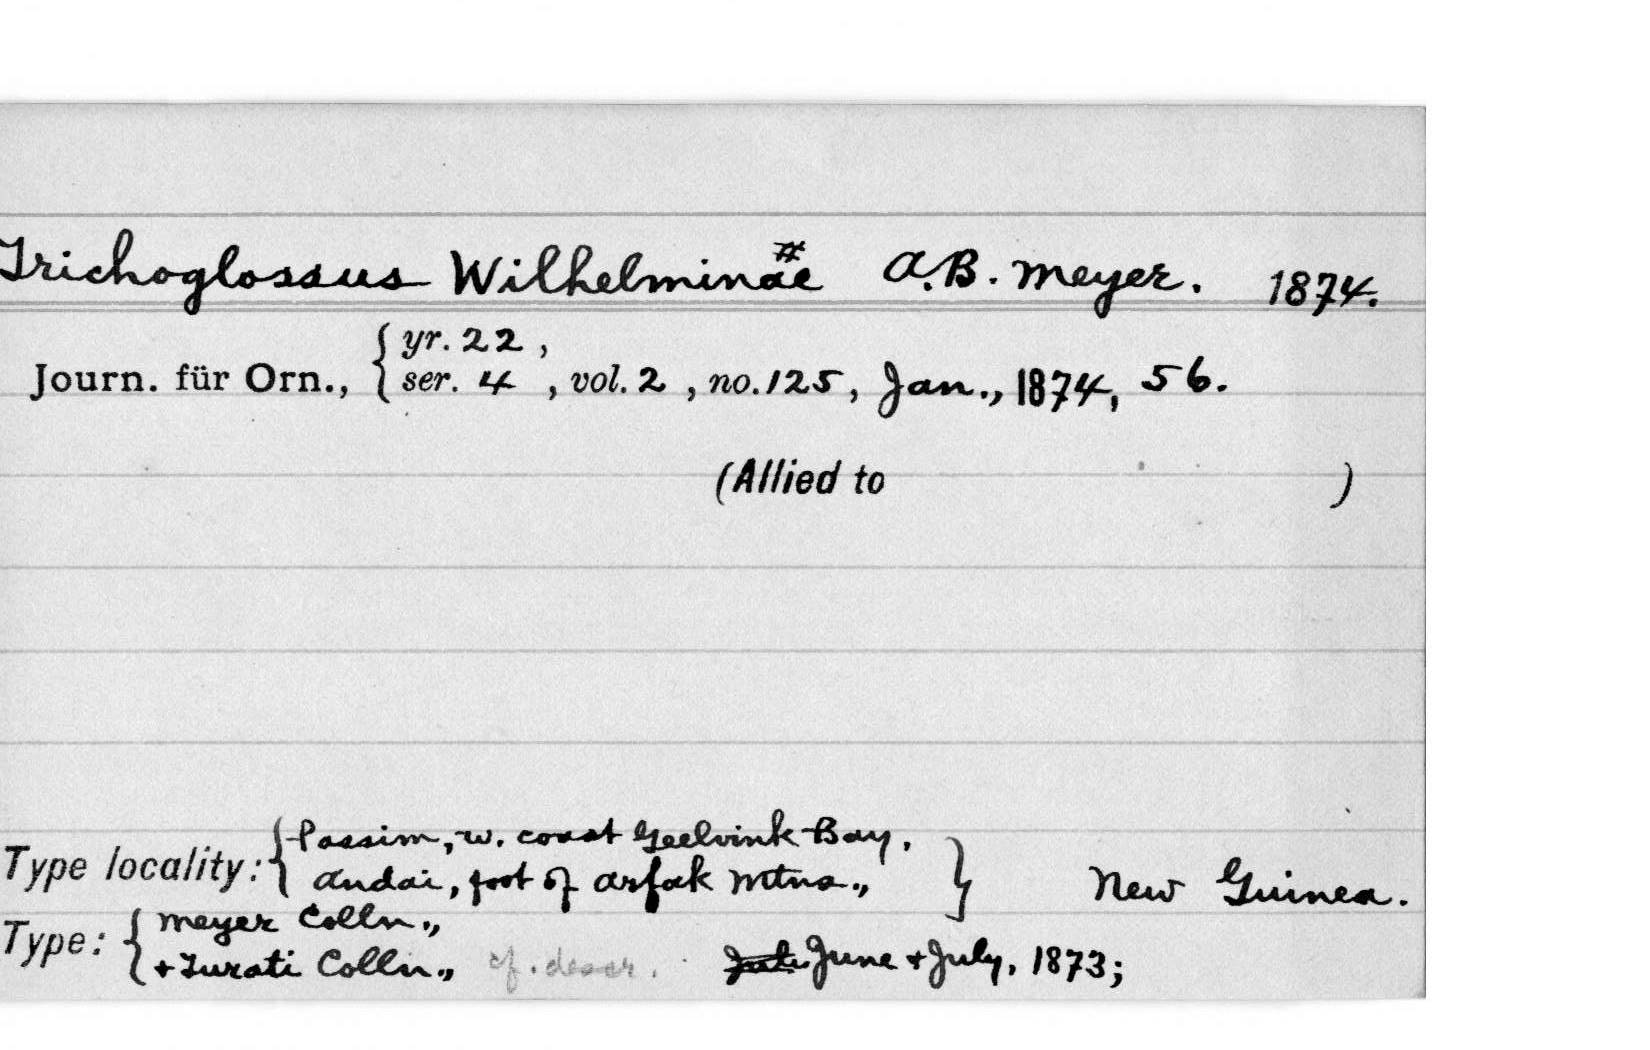 Trichoglossus Wilhelminae A.B. Meyer. 1874.
yr. 22,
Journ. für Orn., ser. 4, vol. 2, no. 125, Jan., 1874, 56.
(Allied to )
Passim, w. coast Geelvink Bay,
Type locality: Andai, foot of Arfak Mtns., New Guinea.
Meyer Colln.,
Type: + Turati Colln., cf. descr. June + July, 1873;